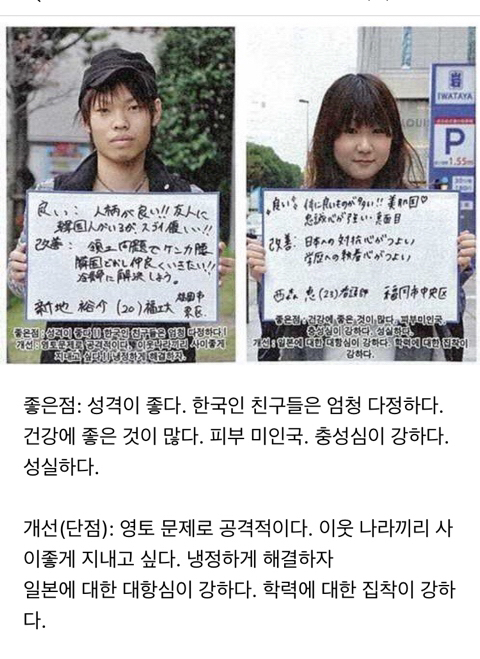 良い: 人柄が良い!! 友人に
韓国人がいるが、スゴイ優しい!!
改善: 領土問題でケンカ腰
隣国どおし仲良くいきたい!!
冷静に解決しよう。
新地 裕介 (20) 福工大 福岡市
東区
좋은점: 성격이 좋다!! 한국인 친구들은 엄청 다정하다.!
개선 : 영토문제로 공격적이다. 이웃나라끼리 사이좋게
지내고 싶다!! 냉정하게 해결하자.
岩
IWATAYA
P
1.55m
良い: 体に良いものが多い!! 美肌の国♡
忠誠心が強い・真面目
改善: 日本への対抗心がつよい
学歴への執着心がつよい
西森 恵 (23) 看護師 福岡市中央区
좋은점 : 건강에 좋은 것이 많다. 피부미인국.
충성심이 강하다. 성실하다.
개선 : 일본에 대한 대항심이 강하다. 학력에 대한 집착이
강하다.
좋은점: 성격이 좋다. 한국인 친구들은 엄청 다정하다.
건강에 좋은 것이 많다. 피부 미인국. 충성심이 강하다.
성실하다.
개선(단점): 영토 문제로 공격적이다. 이웃 나라끼리 사
이좋게 지내고 싶다. 냉정하게 해결하자
일본에 대한 대항심이 강하다. 학력에 대한 집착이 강하
다.